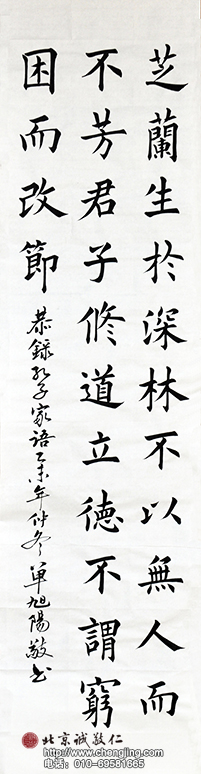 芝蘭生於深林不以無人而
不芳君子修道立德不謂窮
困而改節
恭錄孔子家語乙未年仲冬單旭陽敬书
北京诚敬仁
www.chengjing.com
电话：010-69581665